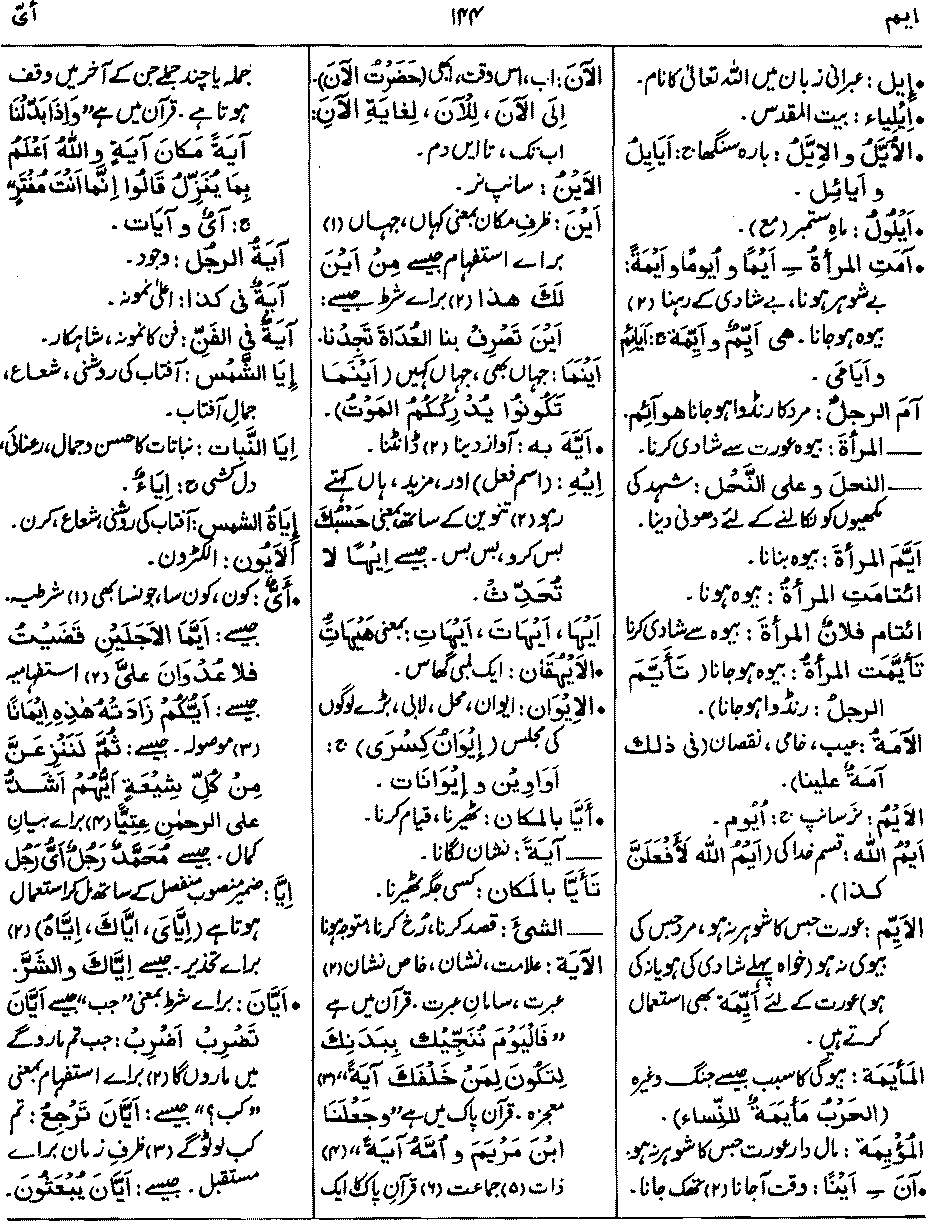 ایم
۱۴۴
أیّ
• إیل : عبرانی زبان میں اللہ تعالیٰ کا نام۔
• إیْلِیاء : بیت المقدس۔
• الأیَّلُ و الإیَّلُ : بارہ سنگھا ج : أیَایِلُ
و أیائِل ۔
• أیْلُولُ : ماہِ ستمبر (مع)۔
• آمَتِ المرأةُ ــِـ أیْمًا و أیومًا و أیْمَةً :
بے شوہر ہونا، بے شادی کے رہنا (۲)
بیوہ ہو جانا۔ ھی أیِّمٌ و أیِّمَة ج : أیایِمُ
و أیَامَی ۔
آمَ الرجلُ : مرد کا رنڈوا ہو جانا ھو آئِم۔
ــــ المرأةَ : بیوہ عورت سے شادی کرنا۔
ــــ النحلَ و علی النَّحْل : شہد کی
مکھیوں کو نکالنے کے لئے دھونی دینا۔
أیَّمَ المرأةَ : بیوہ بنانا۔
ائتامَتِ المرأةُ : بیوہ ہونا۔
ائتام فلانٌ المرأةَ : بیوہ سے شادی کرنا
تأیَّمَت المرأةُ : بیوہ ہو جانا (تَأیَّمَ
الرجلُ : رنڈوا ہو جانا)۔
الآمَةُ : عیب، خامی، نقصان (فی ذلك
آمَةٌ علینا)۔
الأیْمُ : نر سانپ ج : أیُوم۔
أیْمُ الله : قسم خدا کی (أیْمُ الله لَأَفْعَلَنَّ
کذا)۔
الأیِّم : عورت جس کا شوہر نہ ہو، مرد جس کی
بیوی نہ ہو (خواہ پہلے شادی کی ہو یا نہ کی
ہو) عورت کے لئے أیِّمَة بھی استعمال
کرتے ہیں۔
المَأیَمَة : بیوگی کا سبب جیسے جنگ وغیرہ
(الحَرْبُ مَأیَمَةٌ للنِّساء)۔
المُؤیِمَة : مال دار عورت جس کا شوہر نہ ہو۔
• آنَ ــِـ أیْنًا : وقت آجانا (۲) تھک جانا۔
الآنَ : اب، اس وقت، ابھی (حَضَرْتُ الآنَ)۔
إلَی الآنَ، لِلآنَ، لِغایَةِ الآنَ :
اب تک، تا ایں دم۔
الأیْنُ : سانپ نر۔
أیْنَ : ظرفِ مکان بمعنی کہاں، جہاں (۱)
براے استفہام جیسے مِنْ أیْنَ
لَكَ هذا (۲) براے شرط جیسے :
أیْنَ تَصْرِفْ بنا العُدَاةَ تَجِدْنا۔
أیْنَمَا : جہاں بھی، جہاں کہیں (أیْنَمَا
تَکُونُوا یُدْرِکْکُمُ المَوْتُ)۔
• أیَّهَ به : آواز دینا (۲) ڈانٹنا۔
إیْهِ : (اسم فعل) اور، مزید، ہاں کہتے
رہو (۲) تنوین کے ساتھ بمعنی حَسْبُكَ
بس کرو، بس بس۔ جیسے إیْهًا لا
تُحَدِّثْ۔
أیْهَا، أیْهَاتَ، أیْهَاتِ : بمعنی هَیْهَاتَ
• الأیْهُقَانُ : ایک لمبی گھاس۔
• الإیْوَان : ایوان، محل، لابی، بڑے لوگوں
کی مجلس (إیْوَانُ کِسْرَی) ج :
أوَاوِیْن و إیْوَانَات ۔
• أیَّا بالمکان : ٹھیرنا، قیام کرنا۔
ــــ آیةً : نشان لگانا۔
تَأیَّا بالمَکان : کسی جگہ ٹھیرنا۔
ــــ الشیَٔ : قصد کرنا، رُخ کرنا، متوجہ ہونا
الآیَة : علامت، نشان، خاص نشان (۲)
عبرت، سامانِ عبرت۔ قرآن میں ہے
”فَالْیَوْمَ نُنَجِّیْكَ بِبَدَنِكَ
لِتَکُونَ لِمَنْ خَلْفَكَ آیَةً“ (۳)
معجزہ۔ قرآن پاک میں ہے ”وجَعَلْنَا
ابْنَ مَرْیَمَ و أمَّهُ آیَةً“ (۴)
ذات (۵) جماعت (۶) قرآن پاک کا ایک
جملہ یا چند جملے جن کے آخر میں وقف
ہوتا ہے۔ قرآن میں ہے ”وَإذَا بَدَّلْنَا
آیَةً مَکَانَ آیَةٍ وَاللّٰهُ أعْلَمُ
بِمَا یُنَزِّلُ قَالُوا إنَّمَا أنْتَ مُفْتَرٍ“
ج : آیٌ و آیَات ۔
آیَةُ الرجُل : وجود۔
آیَةٌ فی کذا : اعلیٰ نمونہ۔
آیَةٌ فی الفَنِّ : فن کا نمونہ، شاہکار۔
إیَا الشَّمْس : آفتاب کی روشنی، شعاع،
جمالِ آفتاب۔
إیَا النَّبات : نباتات کا حسن و جمال، رعنائی،
دل کشی ج : إیَاءٌ۔
إیَاةُ الشمس : آفتاب کی روشنی، شعاع، کرن۔
ألایُون : الکٹرون۔
• أیٌّ : کون، کون سا، جونسا بھی (۱) شرطیہ۔
جیسے : أیَّمَا الأجَلَیْنِ قَضَیْتُ
فلا عُدْوَانَ علیَّ (۲) استفہامیہ
جیسے : أیُّکُمْ زَادَتْهُ هٰذِهِ إیْمَانًا
(۳) موصولہ۔ جیسے : ثُمَّ لَنَنْزِعَنَّ
مِنْ کُلِّ شِیْعَةٍ أیُّهُمْ أشَدُّ
علی الرحمٰنِ عِتِیًّا (۴) براے بیانِ
کمال۔ جیسے مُحَمَّدٌ رَجُلٌ أیُّ رَجُلٍ
إیَّا : ضمیر منصوب منفصل کے ساتھ مل کر استعمال
ہوتا ہے (إیَّایَ، إیَّاكَ، إیَّاهُ) (۲)
براے تحذیر۔ جیسے إیَّاكَ والشَّرَّ۔
• أیَّانَ : براے شرط بمعنی ”جب“ جیسے أیَّانَ
تَضْرِبْ أضْرِبْ : جب تم مارو گے
میں ماروں گا (۲) براے استفہام بمعنی
”کب؟“ جیسے : أیَّانَ تَرْجِعُ : تم
کب لوٹو گے (۳) ظرفِ زمان براے
مستقبل۔ جیسے : أیَّانَ یُبْعَثُونَ۔